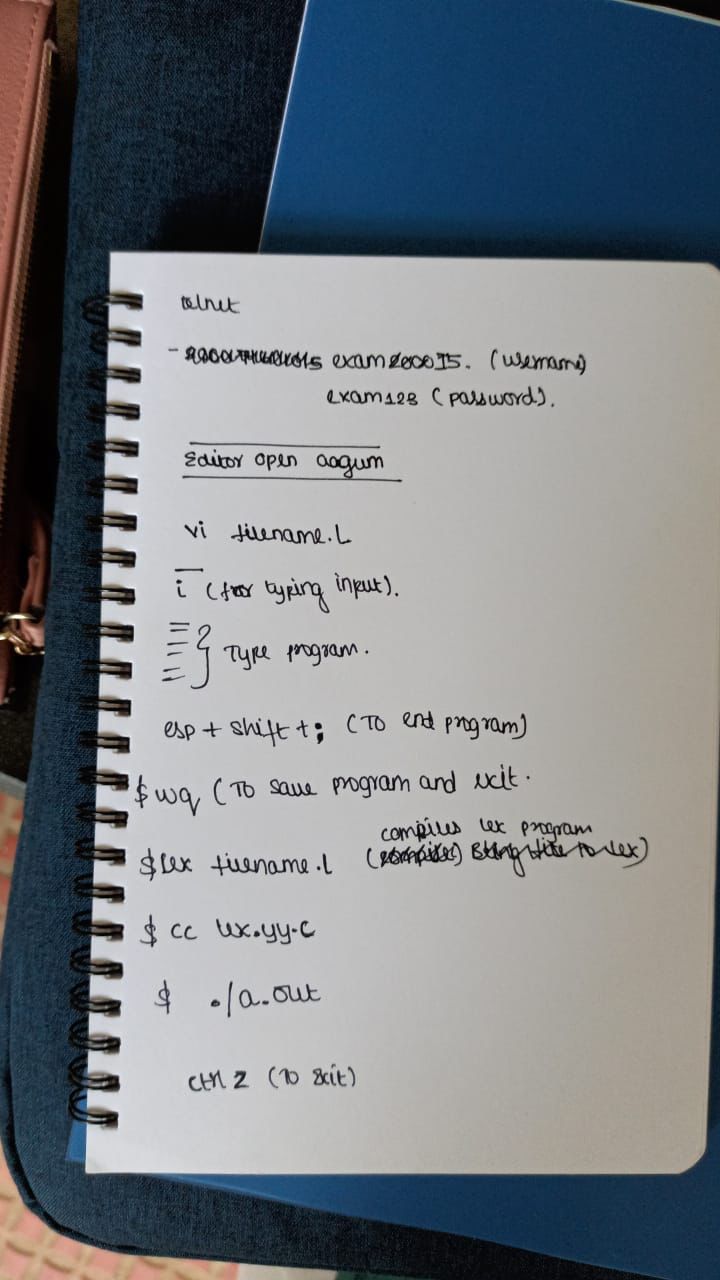 telnet
- exam200015. (username)
exam123 (password).
Editor open aagum
vi filename.l
i (for typing input).
} Type program.
esp + shift + ; (To end program)
$wq (To save program and exit.
compiles lex program
$lex filename.l
$ cc lex.yy.c
$ ./a.out
ctrl z (to exit)